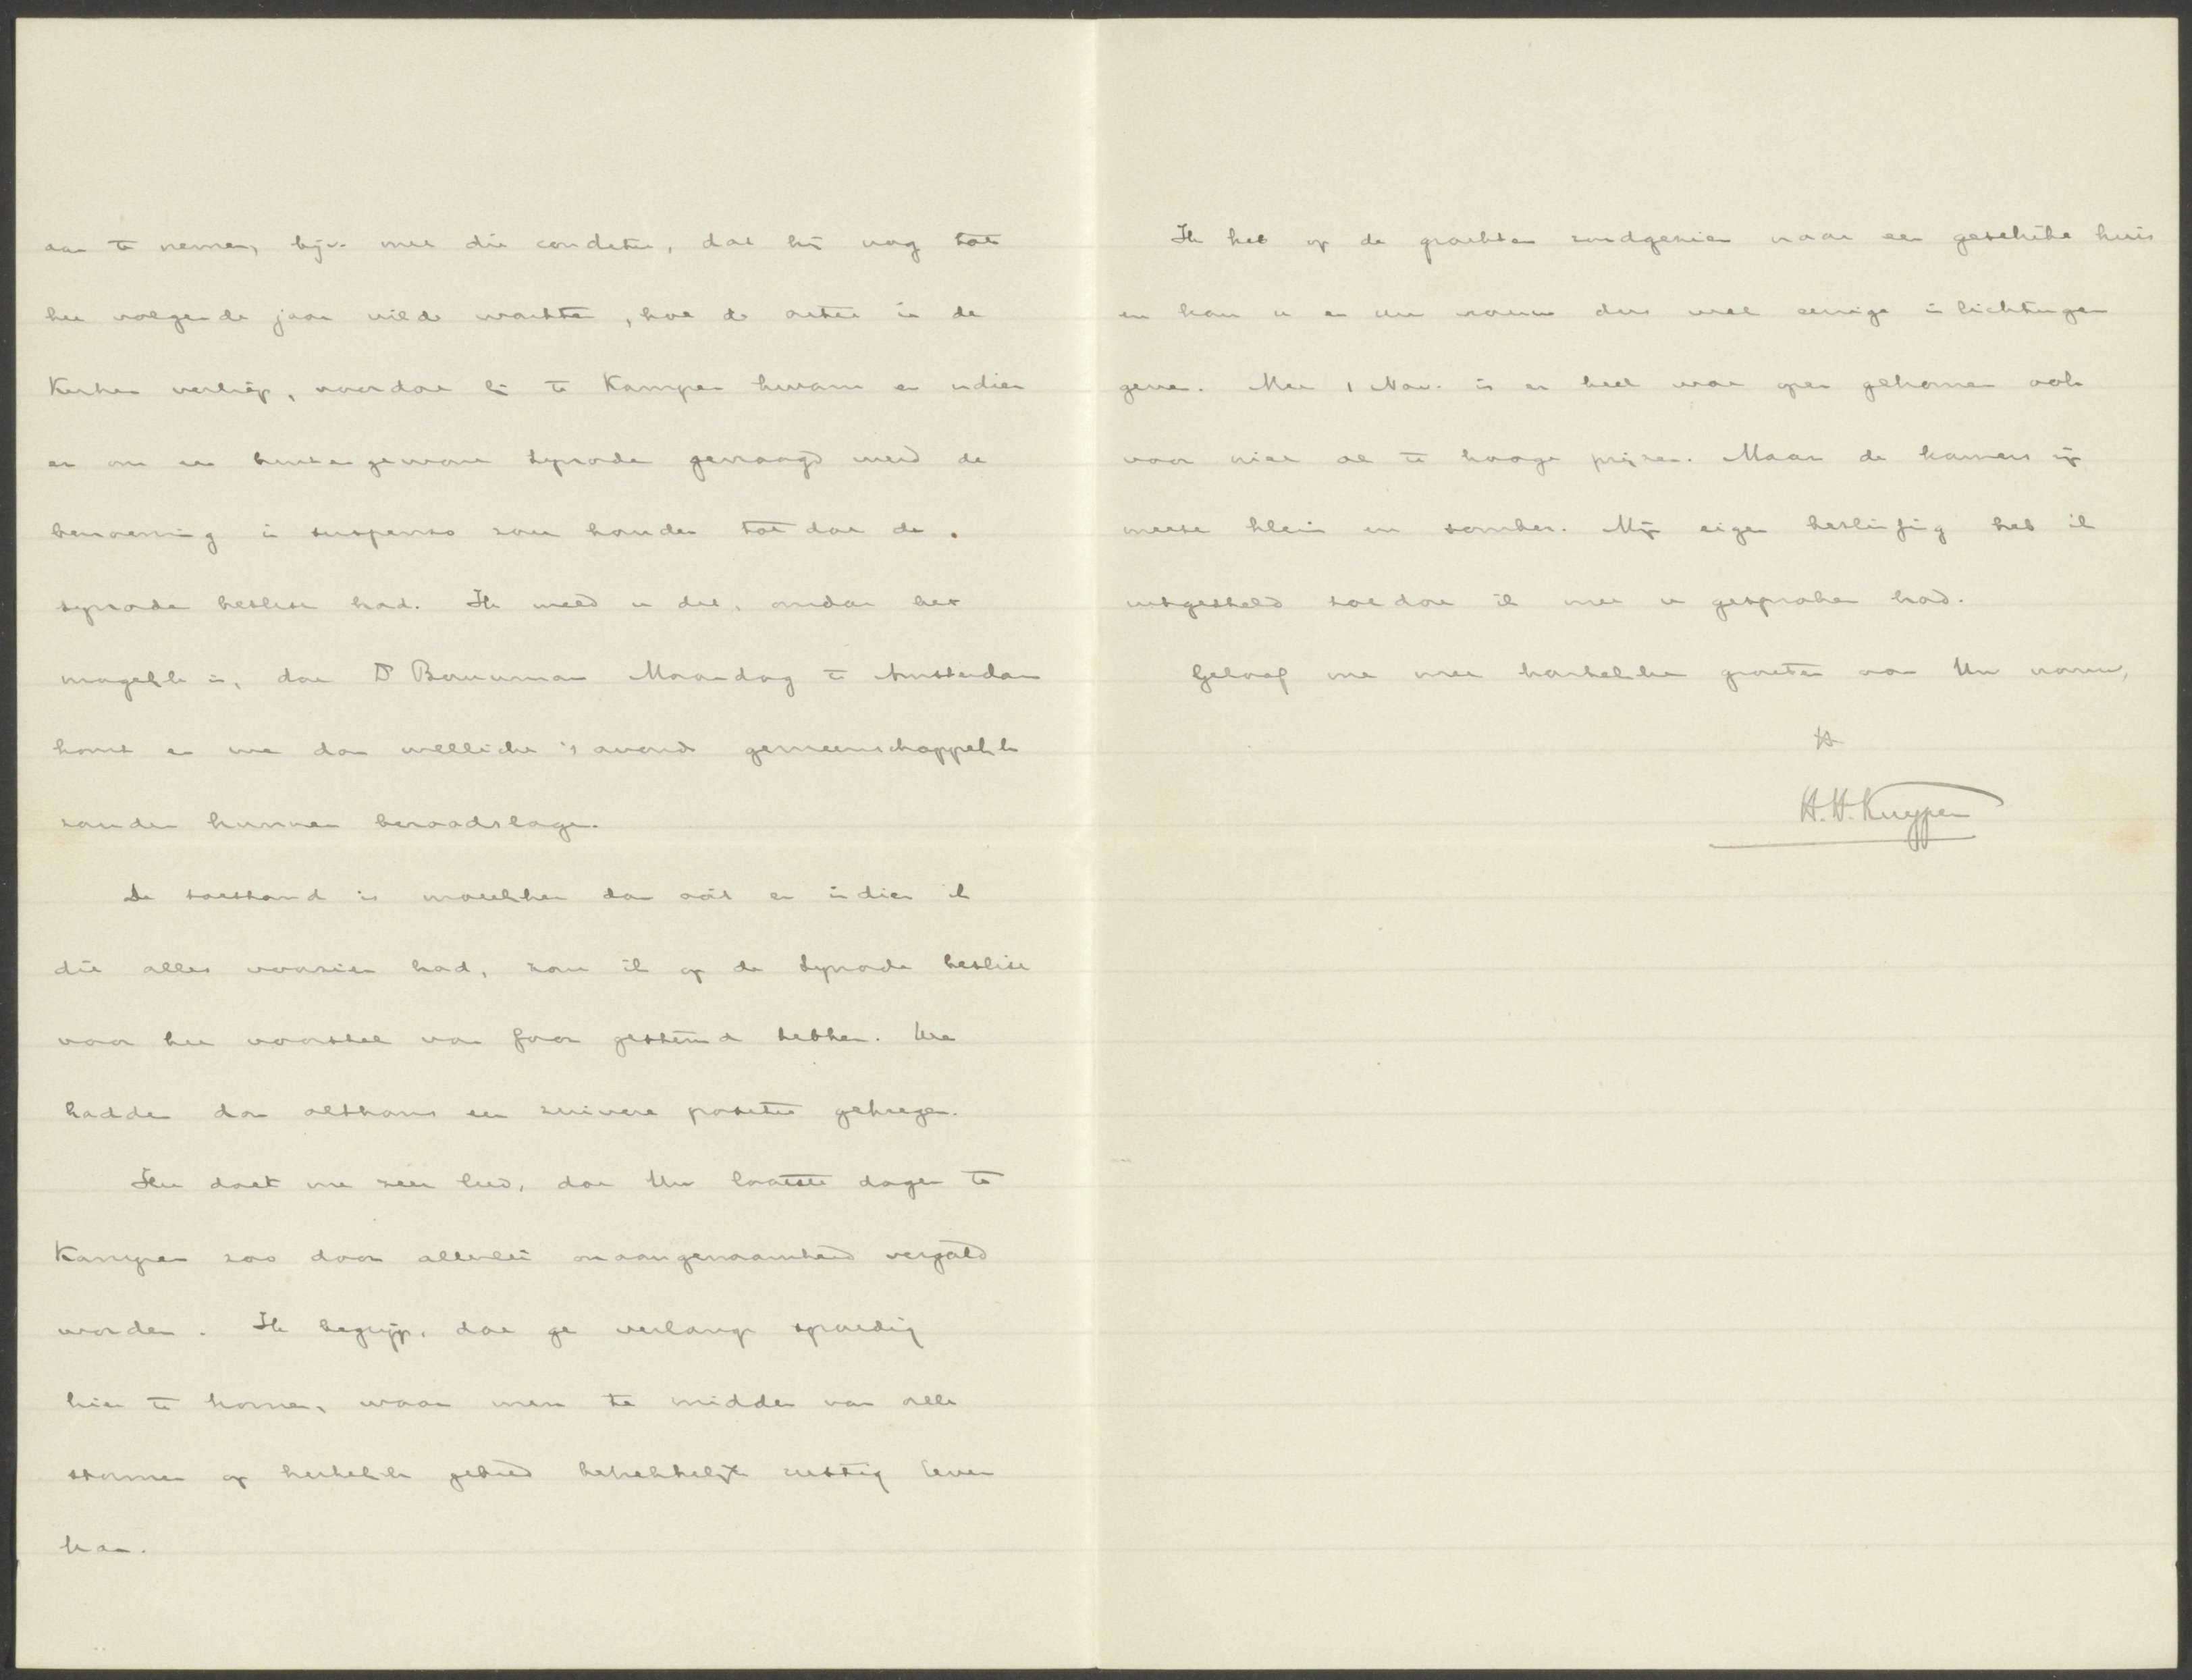 aan te nemen, bijv. met die conditie, dat hij nog tot
het volgende jaar wilde wachten, hoe de actie in de
Kerken verliep, voordat hij te Kampen kwam en indien
er om een buitengewone Synode gevraagd werd de
benoeming in suspenso zou houden totdat de
synode beslist had. Ik meld u dit, omdat het
mogelijk is, dat Ds Bouwman Maandag te Amsterdam
komt en we dan wellicht 's avonds gemeenschappelijk
zouden kunnen beraadslagen.
De toestand is moeielijker dan ooit en indien ik
dit alles voorzien had, zou ik op de Synode beslist
voor het voorstel van Goor gestemd hebben. We
hadden dan althans een zuivere positie gekregen.
Het doet me zeer leed, dat Uw laatste dagen te
Kampen zoo door allerlei onaangenaamheid vergald
worden. Ik begrijp, dat ge verlangt spoedig
hier te komen, waar men te midden van alle
stormen op kerkelijk gebied betrekkelijk rustig leven
kan.
Ik heb op de grachten rondgezien naar een geschikt huis
en kan u en uw vrouw dus wel eenige inlichtingen
geven. Met 1 Nov. is er heel wat open gekomen ook
voor niet al te hooge prijzen. Maar de kamers zijn
meest klein en somber. Mijn eigen beslissing heb ik
uitgesteld totdat ik met u gesproken had.
Geloof me met hartelijke groeten aan Uw vrouw,
tt
H. H. Kuyper